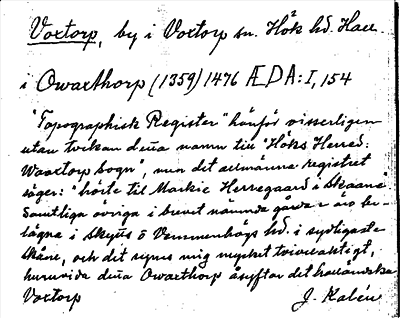 Voxtorp, by i Voxtorp sn. Höks hd. Hall.
i Owarthorp (1359) 1476 ÆDA: I, 154
"Topographisk Register" hänför visserligen
utan tvekan detta namn till "Höks Herred:
Waartorp sogn", men det allmänna registret
säger: "hörte til Markie Herregaard i Skaane".
Samtliga övriga i brevet nämnda gårdar äro be-
lägna i Skytts o Vemmenhögs hd. i sydligaste
Skåne, och det synes mig mycket tvivelaktigt,
huruvida detta Owarthorp åsyftar det halländska
Voxtorp J. Kalén